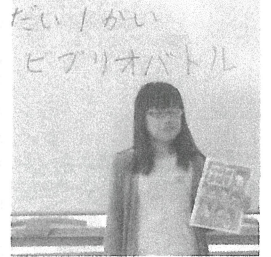 だい1かい
ビブリオバトル